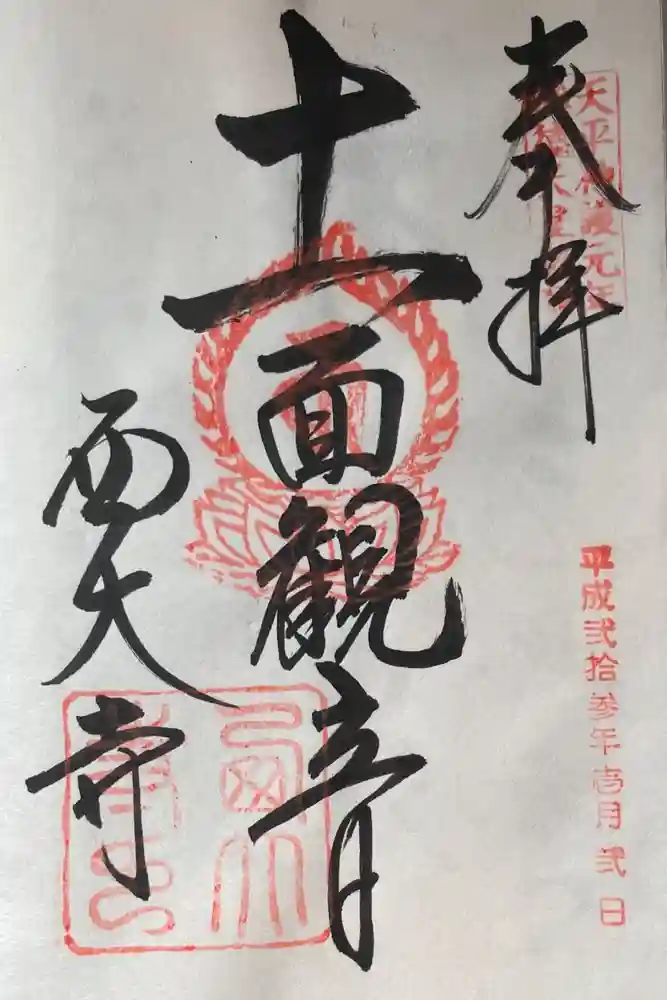 奉拝
天平神護元年
平成弐拾参年壱月弐日
十一面観音
西大寺